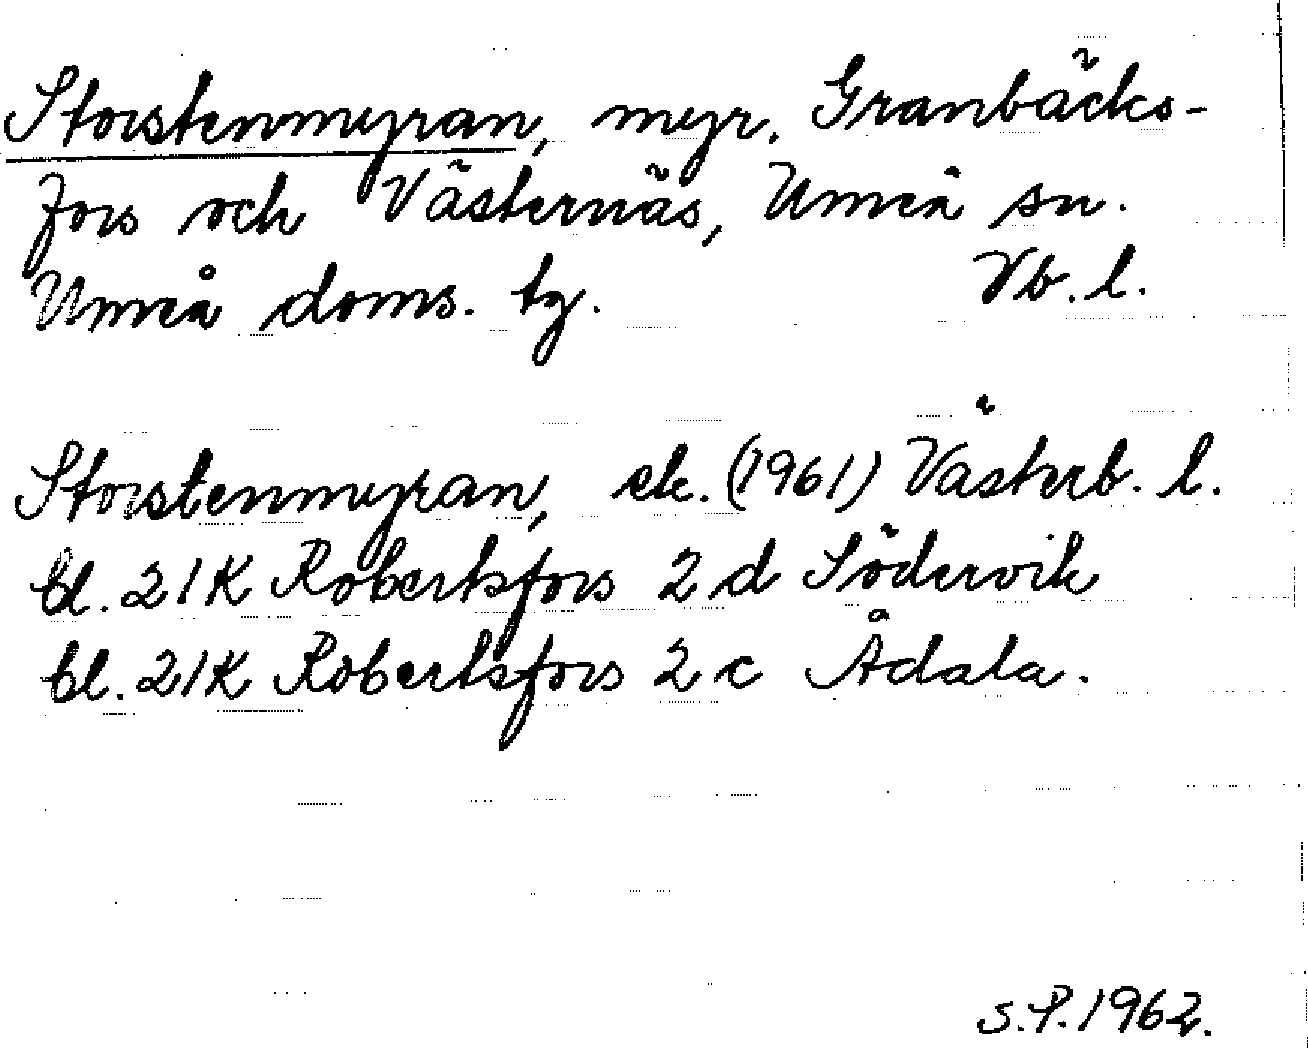 Storstenmyran, myr. Granbäcks-
fors och Västernäs, Umeå sn.
Umeå doms. tg. Vb. l.
Storstenmyran, ek. (1961) Västerb. l.
bl. 21K Robertsfors 2 d Södervik
bl. 21K Robertsfors 2 c Ådala.
S.P. 1962.